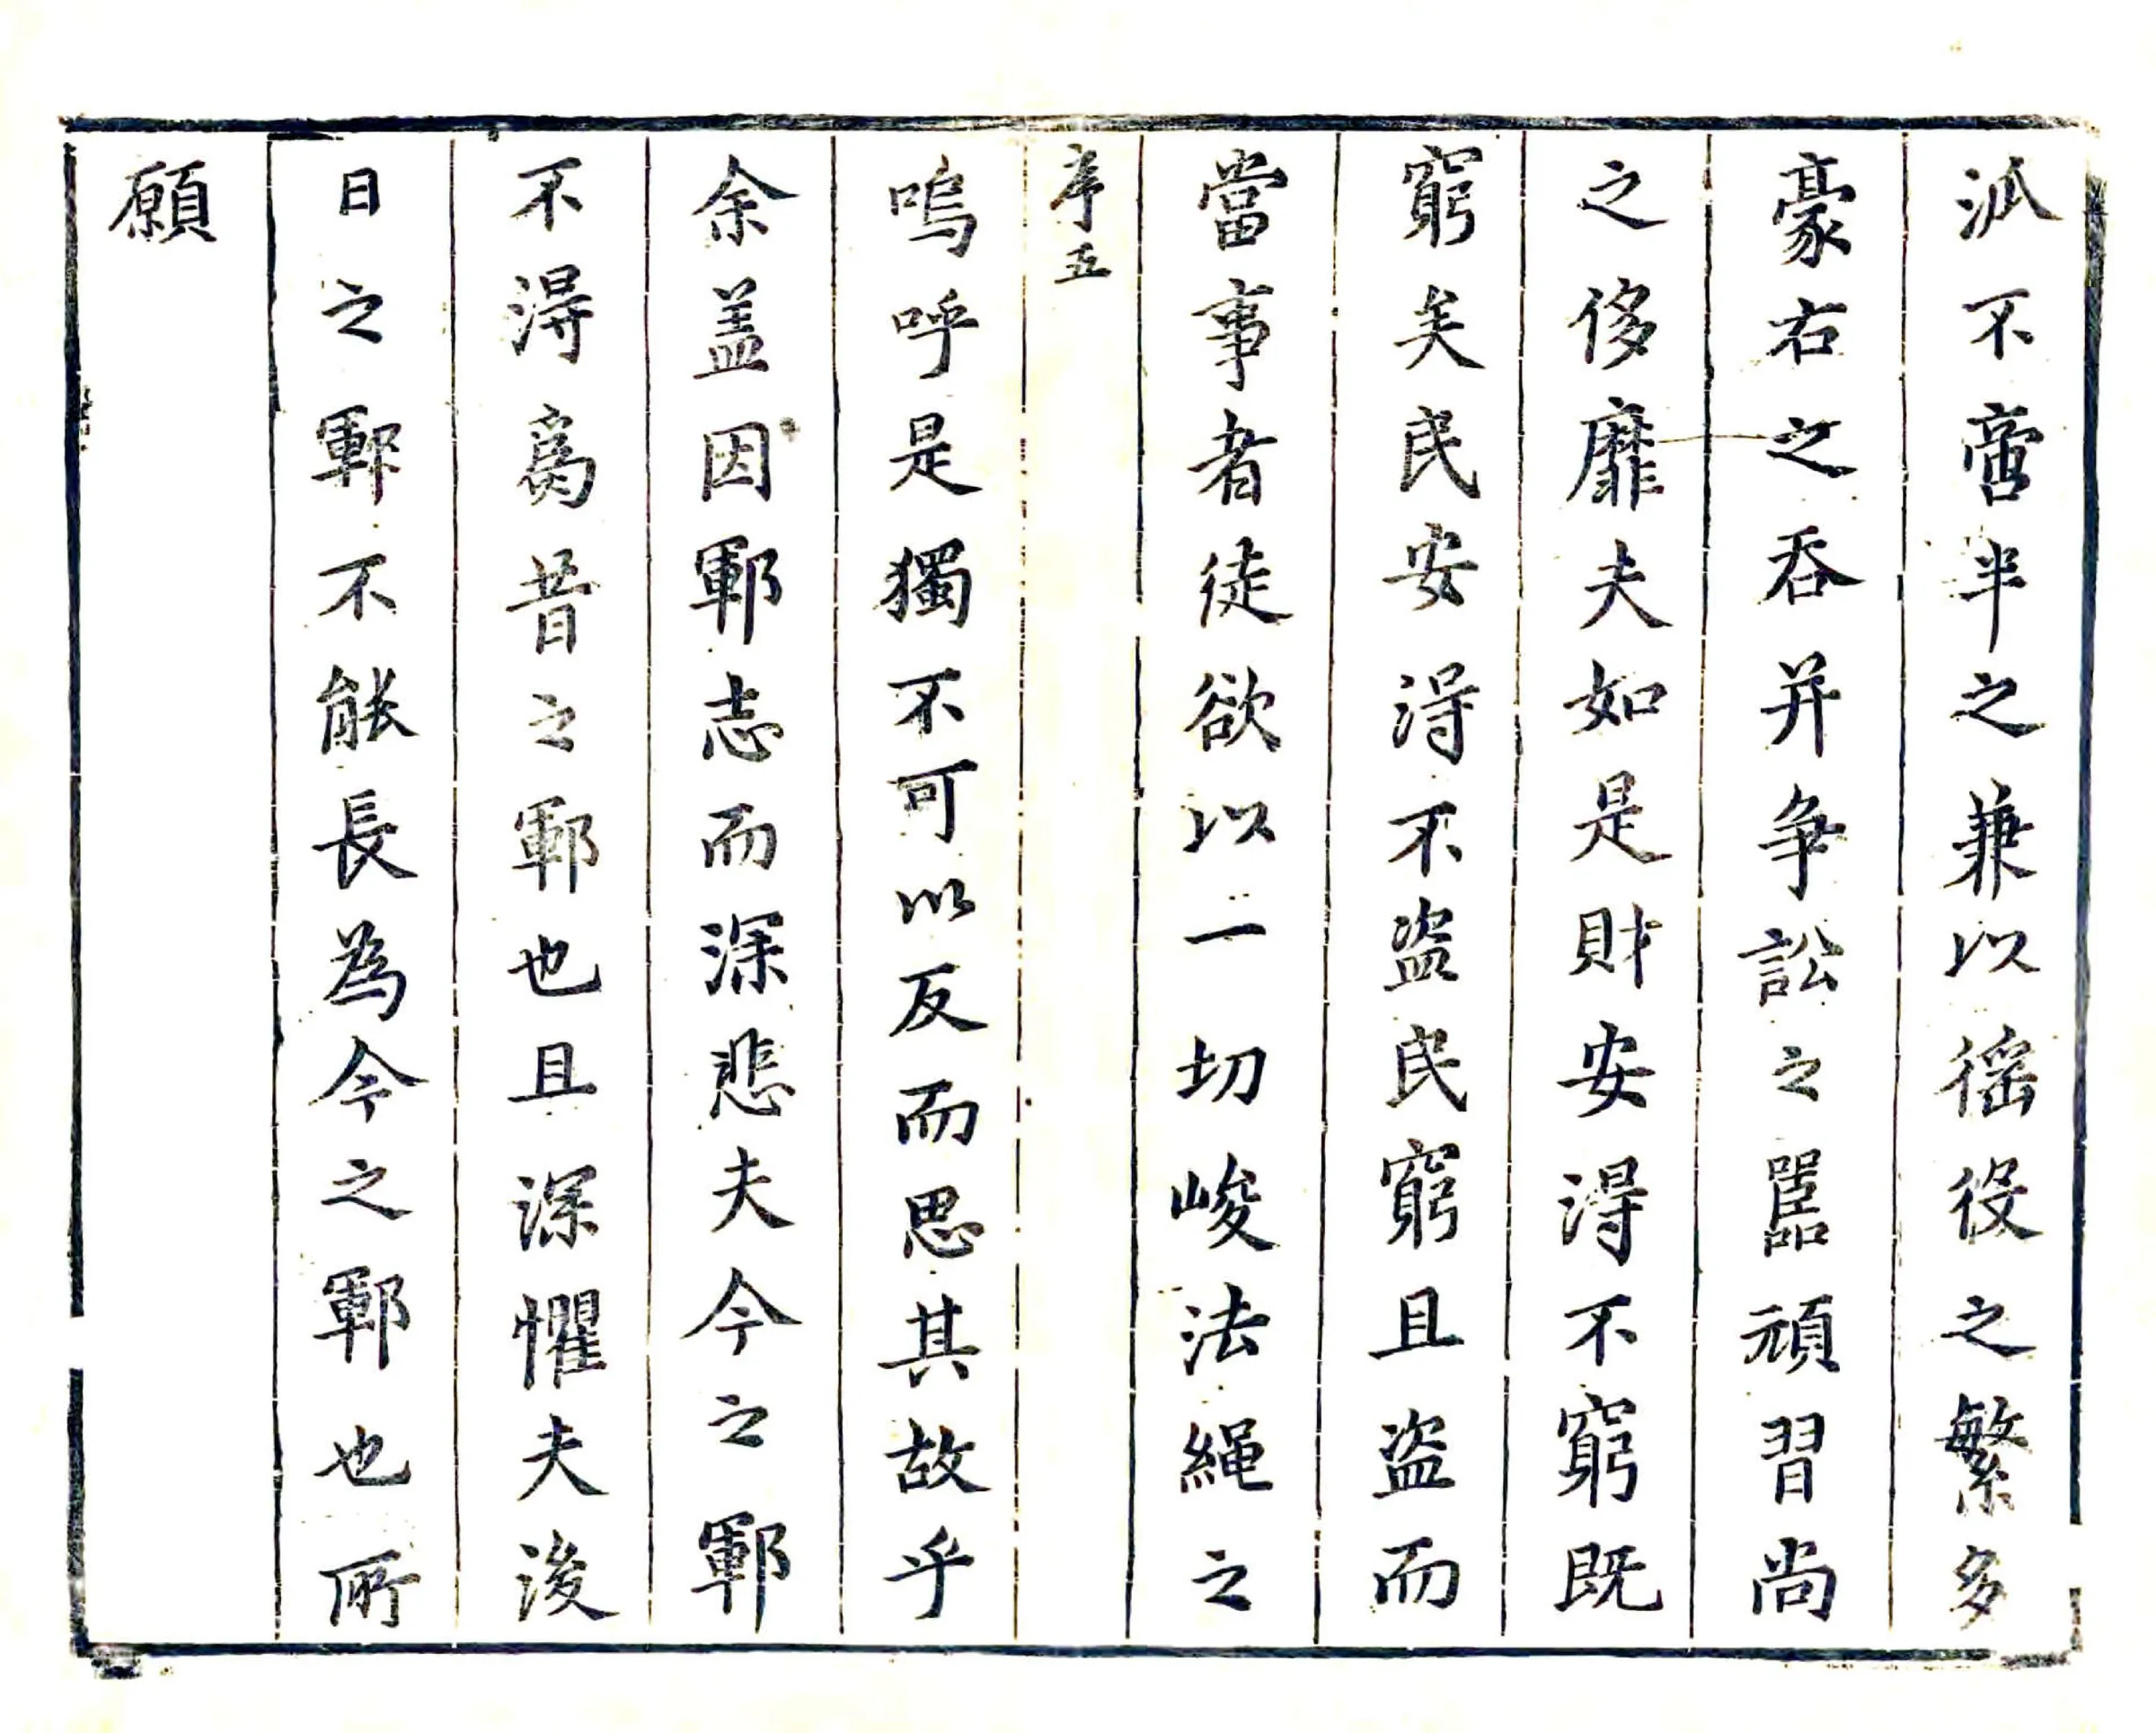 派不啻半之兼以徭役之繁多
豪右之吞并争訟之嚚頑習尚
之侈靡夫如是財安得不窮既
窮矣民安得不盜民窮且盜而
當事者徒欲以一切峻法繩之
序五
嗚呼是獨不可以反而思其故乎
余盖因鄆志而深悲夫今之鄆
不得爲昔之鄆也且深懼夫後
日之鄆不能長為今之鄆也所
願